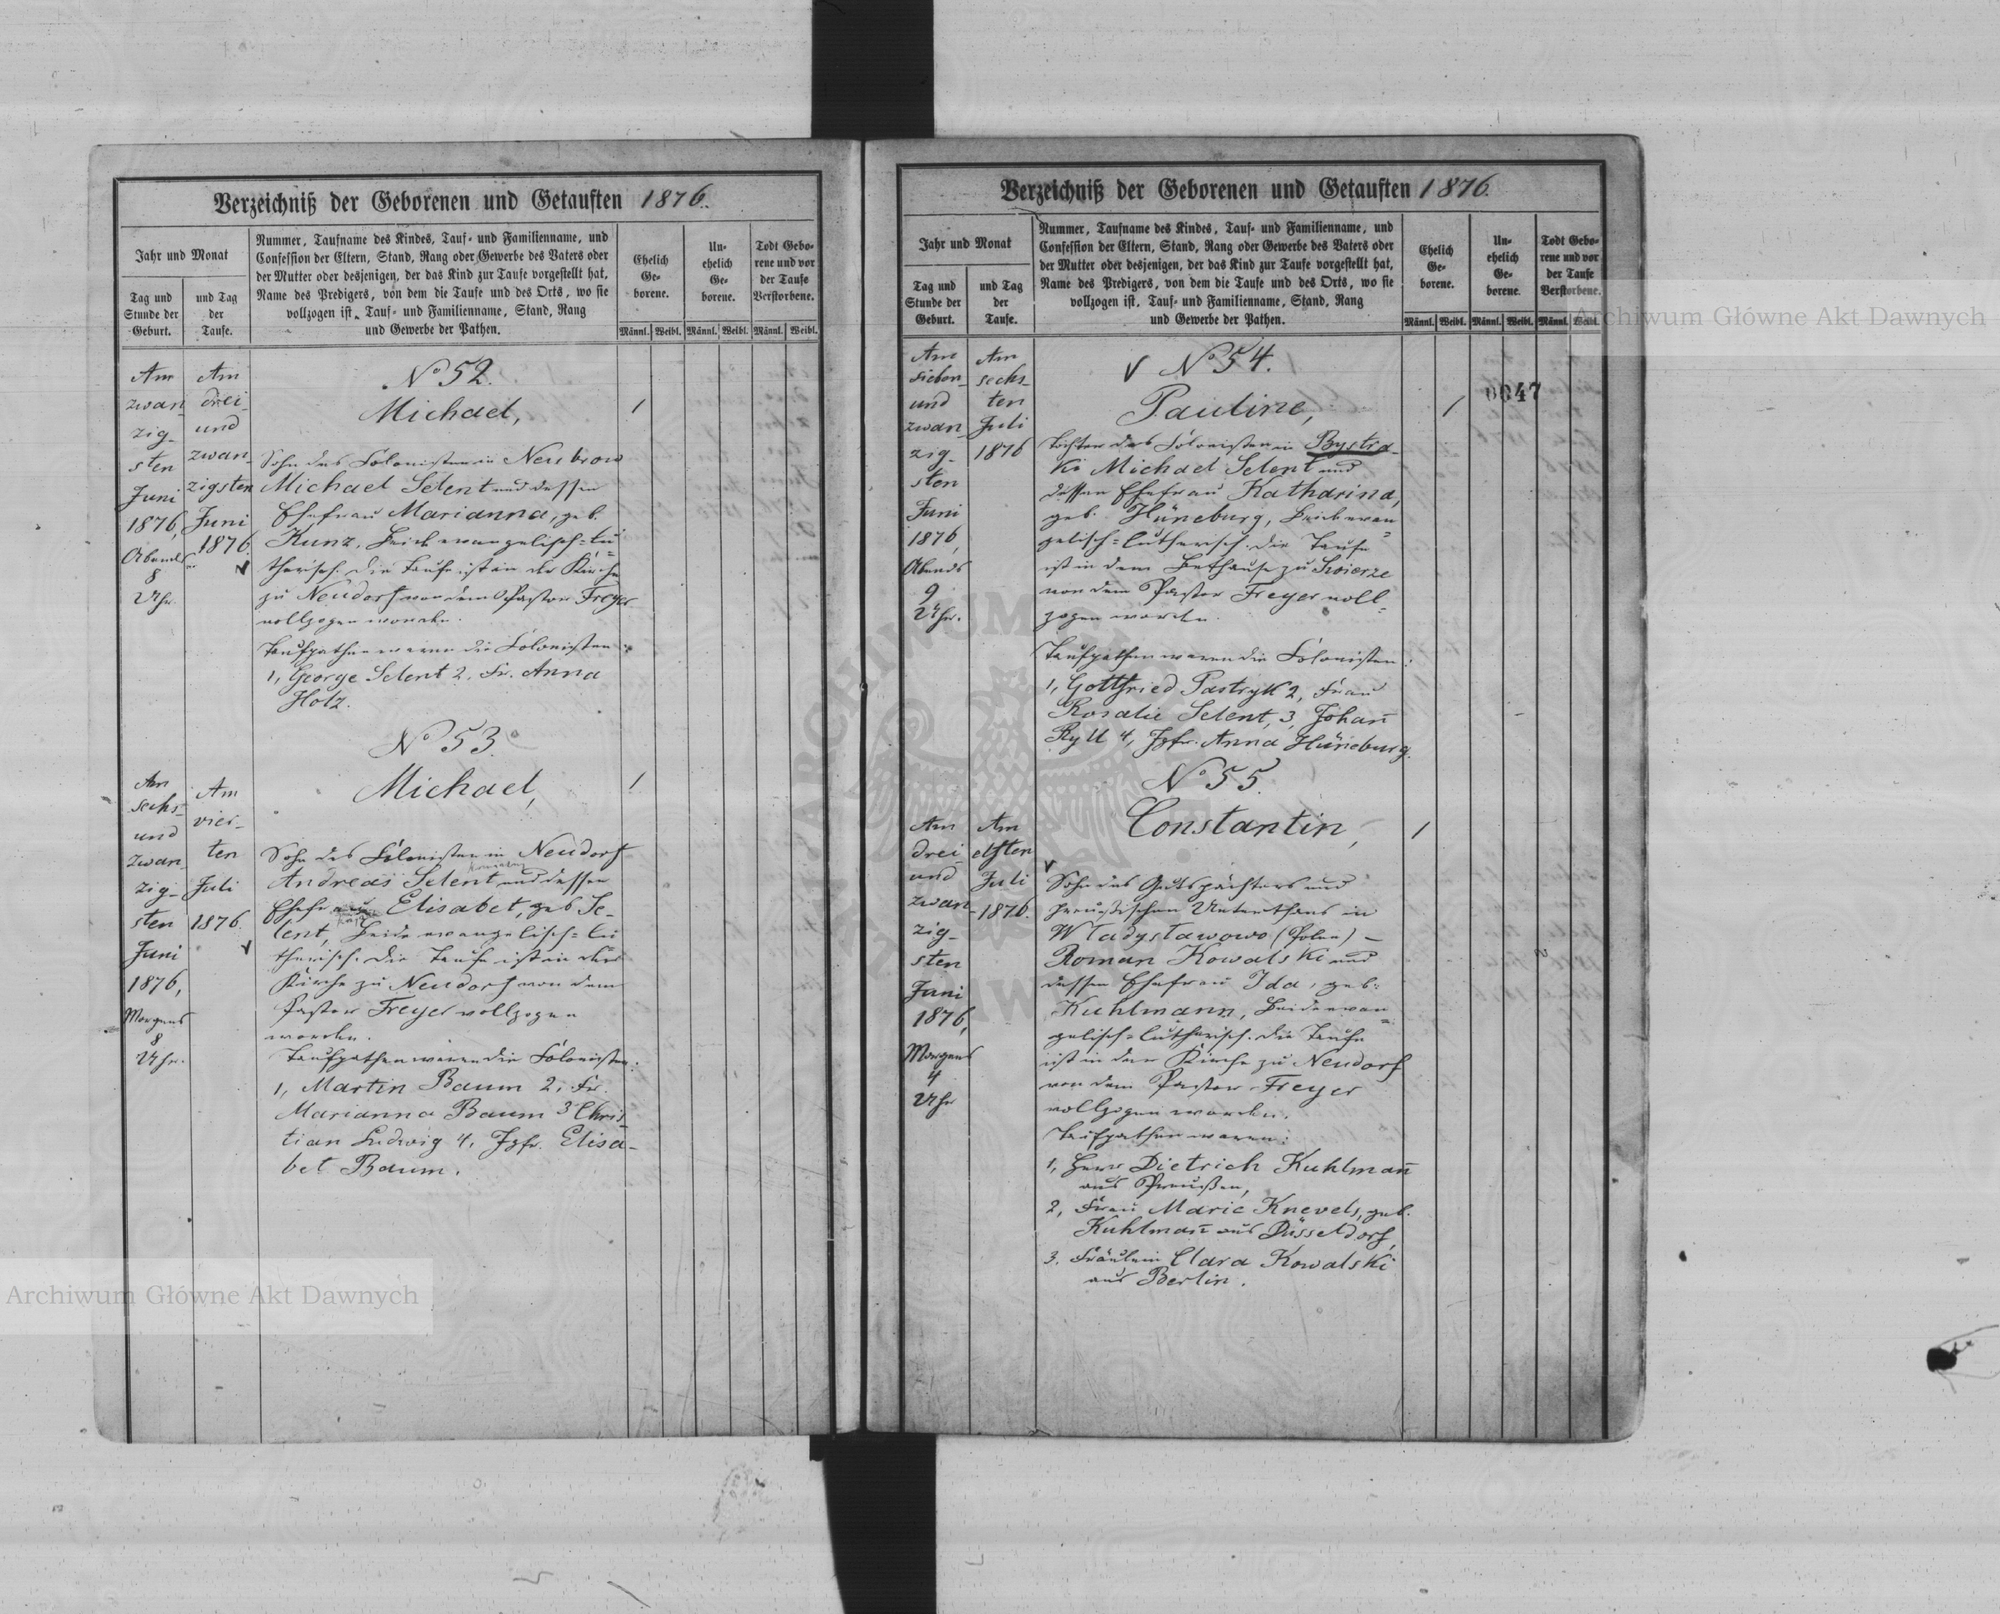 Verzeichniß der Geborenen und Getauften 1876.
Jahr und Monat
Tag und
Stunde der
Geburt.
und Tag
der
Taufe.
Nummer, Taufname des Kindes, Tauf- und Familienname, und
Confession der Eltern, Stand, Rang oder Gewerbe des Vaters oder
der Mutter oder desjenigen, der das Kind zur Taufe vorgestellt hat,
Name des Predigers, von dem die Taufe und des Orts, wo sie
vollzogen ist, Tauf- und Familienname, Stand, Rang
und Gewerbe der Pathen.
Ehelich
Ge-
borene.
Un-
ehelich
Ge-
borene.
Todt Gebo-
rene und vor
der Taufe
Verstorbene.
Männl. Weibl. Männl. Weibl. Männl. Weibl.
Am
zwan-
zig-
sten
Juni
1876,
Abends
8
Uhr.
Am
drei-
und
zwan-
zigsten
Juni
1876.
No 52.
Michael,
1
Sohn des Colonisten in Neubrow
Michael Selent und dessen
Ehefrau Marianna, geb.
Kunz, Beide evangelisch=lu=
therisch. Die Taufe ist in der Kirche
zu Neudorf von dem Pastor Freyer
vollzogen worden.
Taufpathen waren die Colonisten:
1, George Selent 2, Fr. Anna
Hotz.
Am
sechs-
und
zwan-
zig-
sten
Juni
1876,
Morgens
8
Uhr.
Am
vier-
ten
Juli
1876.
No 53.
Michael,
1
Sohn des Colonisten in Neudorf
Andreas Selent und dessen
Ehefrau Elisabet, geb. Se-
lent, Beide evangelisch=lu
therisch. Die Taufe ist in der
Kirche zu Neudorf von dem
Pastor Freyer vollzogen
worden.
Taufpathen waren die Colonisten:
1, Martin Baum 2, Fr.
Marianna Baum 3 Chris-
tian Ludwig 4, Jgfr. Elisa-
bet Baum.
Verzeichniß der Geborenen und Getauften 1876.
Jahr und Monat
Tag und
Stunde der
Geburt.
und Tag
der
Taufe.
Nummer, Taufname des Kindes, Tauf- und Familienname, und
Confession der Eltern, Stand, Rang oder Gewerbe des Vaters oder
der Mutter oder desjenigen, der das Kind zur Taufe vorgestellt hat,
Name des Predigers, von dem die Taufe und des Orts, wo sie
vollzogen ist, Tauf- und Familienname, Stand, Rang
und Gewerbe der Pathen.
Ehelich
Ge-
borene.
Un-
ehelich
Ge-
borene.
Todt Gebo-
rene und vor
der Taufe
Verstorbene.
Männl. Weibl. Männl. Weibl. Männl. Weibl.
0047
Am
sieben-
und
zwan-
zig-
sten
Juni
1876,
Abends
9
Uhr.
Am
sechs-
ten
Juli
1876
No 54.
Pauline,
1
Tochter des Colonisten in Bystra-
ki Michael Selent und
dessen Ehefrau Katharina,
geb. Hüneburg, Beide evan=
gelisch=lutherisch. Die Taufe
ist in dem Bethause zu Swierze
von dem Pastor Freyer voll=
zogen worden.
Taufpathen waren die Colonisten:
1, Gottfried Pastryk 2, Frau
Rosalie Selent, 3, Johañ
Ryll 4, Jgfr. Anna Hüneburg.
Am
drei-
und
zwan-
zig-
sten
Juni
1876,
Morgens
4
Uhr
Am
elften
Juli
1876.
No 55.
Constantin,
1
Sohn des Gutspächters und
preußischen Unterthans in
Wladyslawowo (Polen) –
Roman Kowalski und
dessen Ehefrau Ida, geb.
Kuhlmann, Beide evan=
gelisch=lutherisch. Die Taufe
ist in der Kirche zu Neudorf
von dem Pastor Freyer
vollzogen worden.
Taufpathen waren:
1, Herr Dietrich Kuhlmañ
aus Preußen,
2, Frau Marie Knevels, geb.
Kuhlmañ aus Düsseldorf,
3. Fräulein Clara Kowalski
aus Berlin.
Archiwum Główne Akt Dawnych
Archiwum Główne Akt Dawnych